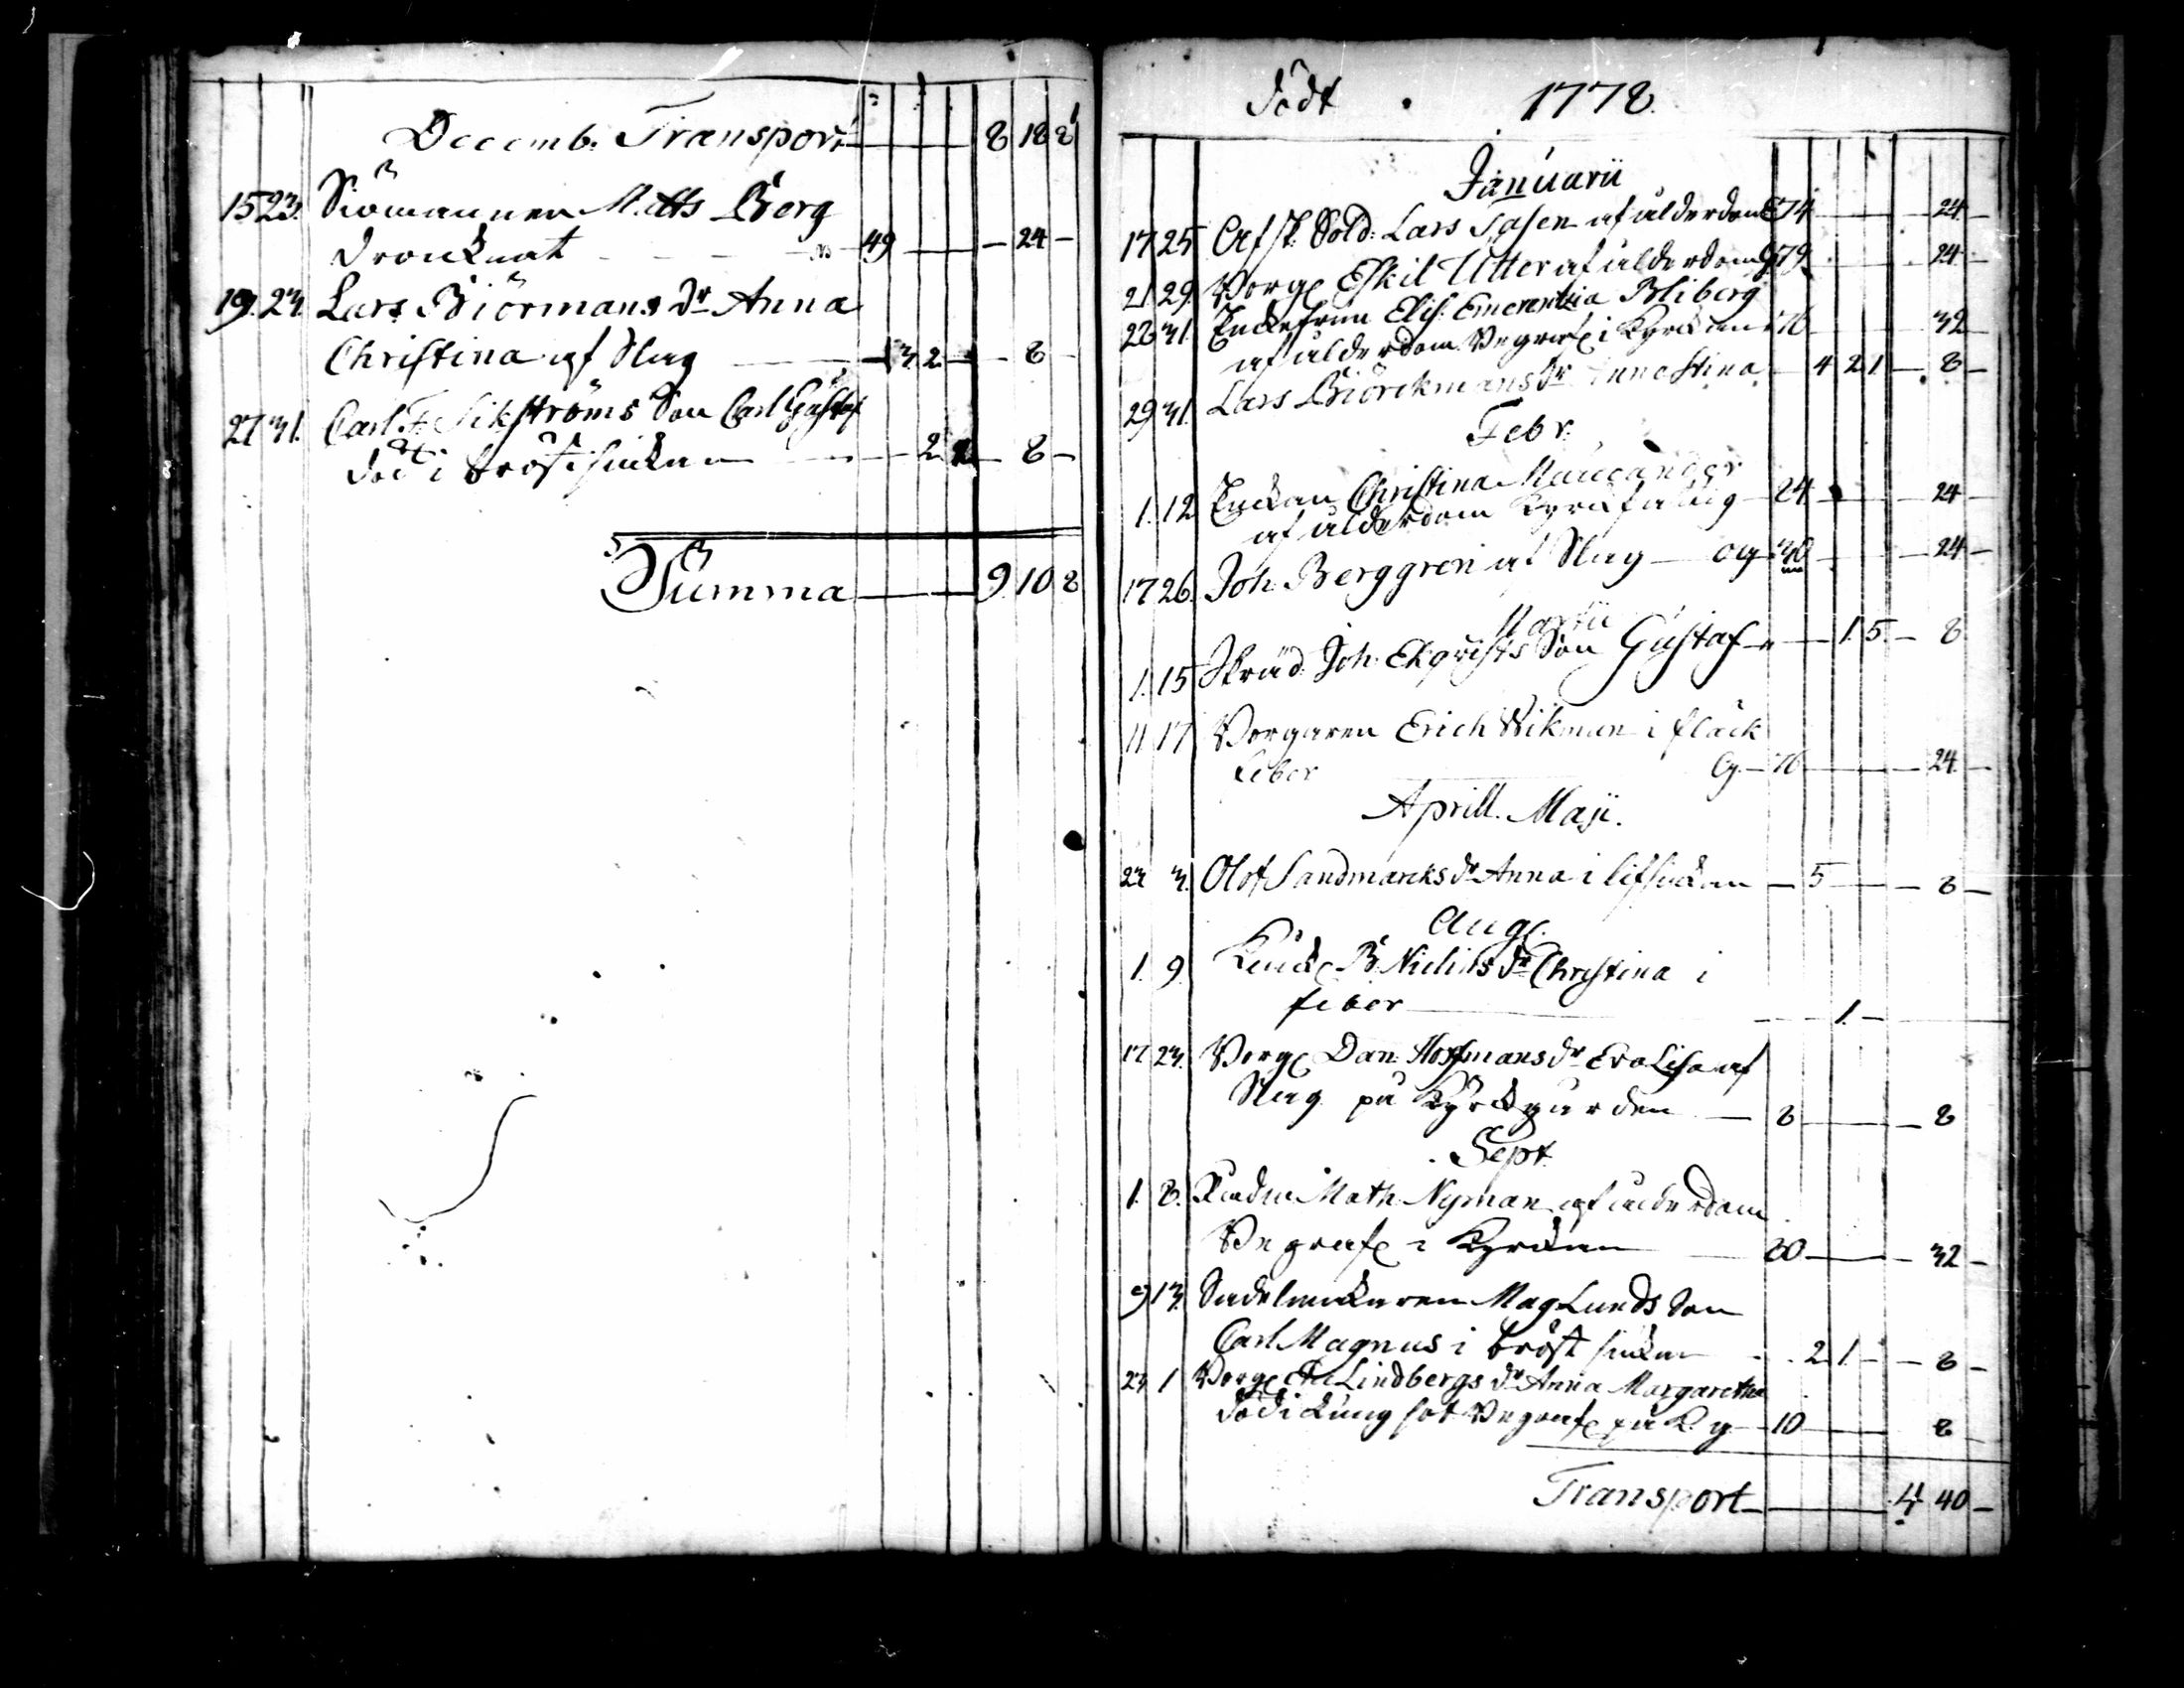 Decemb. Transport 8 18 8
15 23. Siömannen Matts Berg
Drunknat 49 24
19. 23. Lars Biörmans Dr Anna
Christina af Slag 3 2 8
27 31. Carl F. Sikströms Son Carl Gustaf
död i bröstsiukan 2 8
Summa 9 10 8
Dödt 1778.
Januarii
17 25 Afsk. Sold. Lars Sasen af ålderdom 74 24
21 29. Borg. Eskil Utter af ålderdom 79 24
31. Enckefrun Elis. Emerentia Bliberg
af ålderdom i Kyrckan 76 32
29 31. Lars Biörckmans Dr Anna Stina 4 21 8
Febr.
1. 12 Enckan Christina
af ålderdom 24
17 26. Joh. Berggren af Slag og 30 24
Martii
1. 15 Skräd. Joh. Ekqvists Son Gustaf 1. 5 8
11 17 Borgaren Erich Wikman i fläck
feber G. 76 24
Aprill. Maji.
23 3. Olof Sandmarcks dr Anna i lifsuckan 5 8
Aug.
1. 9. B. dr Christina i
feber 1.
17 23. Borg. Dan. Hoffmans dr Eva Lisa af
Slag på Kyrckgården 8 8
Sept.
1. 8. Math. Nyman af ålderdom
i Kyrckan 80 32
9 13. Sadelmakaren Mag Lunds Son
Carl Magnus i bröst siukan 2 1 8
23 1 Borg. Lindbergs dr Anna Margaretha
död i Lungsot på K. g. 10 8
Transport 4 40